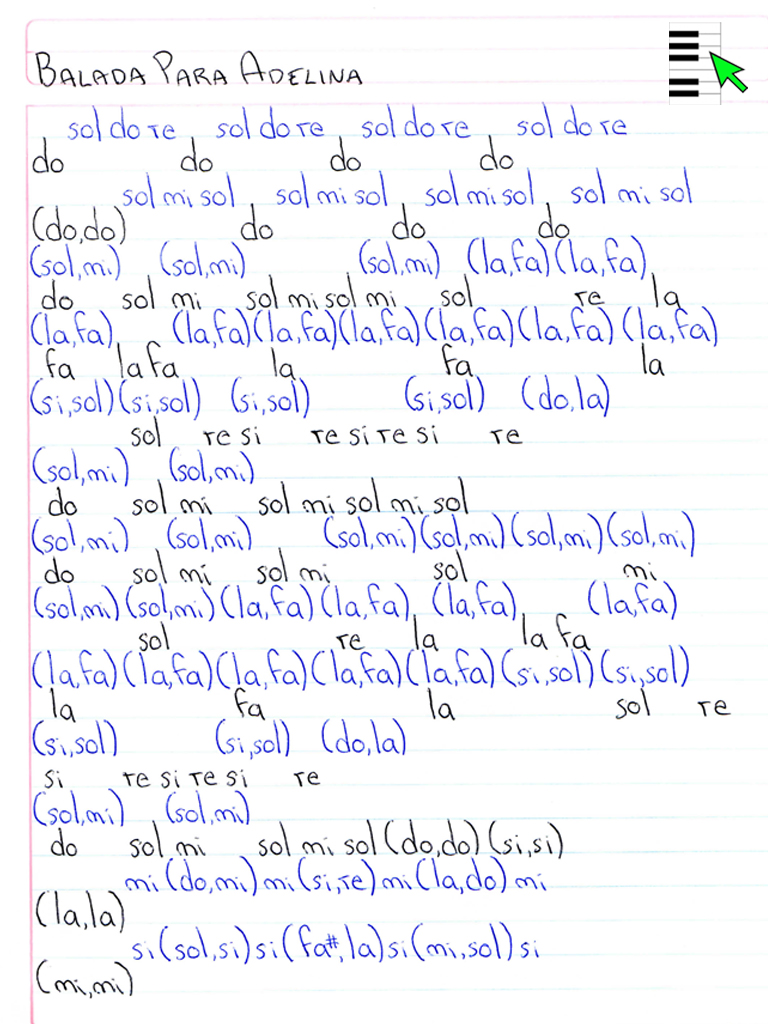 BALADA PARA ADELINA
sol do re, sol do re, sol do re, sol do re
do do do do
sol mi sol, sol mi sol, sol mi sol, sol mi sol
(do,do) do do do
(sol,mi) (sol,mi) (sol,mi) (la,fa)(la,fa)
do sol mi sol mi sol mi sol re la
(la,fa) (la,fa)(la,fa)(la,fa)(la,fa)(la,fa)(la,fa)
fa la fa la fa la
(si,sol)(si,sol) (si,sol) (si,sol) (do,la)
sol re si re si re si re
(sol,mi) (sol,mi)
do sol mi sol mi sol mi sol
(sol,mi) (sol,mi) (sol,mi)(sol,mi)(sol,mi)(sol,mi)
do sol mi sol mi sol mi
(sol,mi)(sol,mi)(la,fa)(la,fa) (la,fa) (la,fa)
sol re la la fa
(la,fa)(la,fa)(la,fa)(la,fa)(la,fa)(si,sol)(si,sol)
la fa la sol re
(si,sol) (si,sol) (do,la)
si re si re si re
(sol,mi) (sol,mi)
do sol mi sol mi sol (do,do)(si,si)
mi(do,mi)mi(si,re)mi(la,do)mi
(la,la)
si(sol,si)si(fa#,la)si(mi,sol)si
(mi,mi)